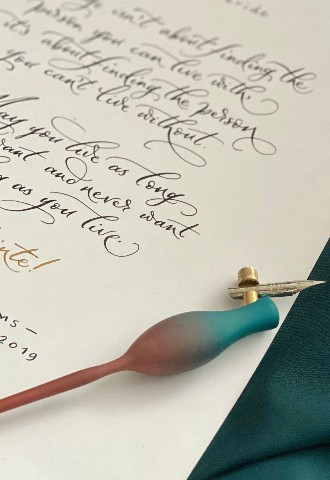 isn't about finding the
person you can live with,
it's about finding the person
you can't live without.
May you live as long
want and never want
as you live.
2019